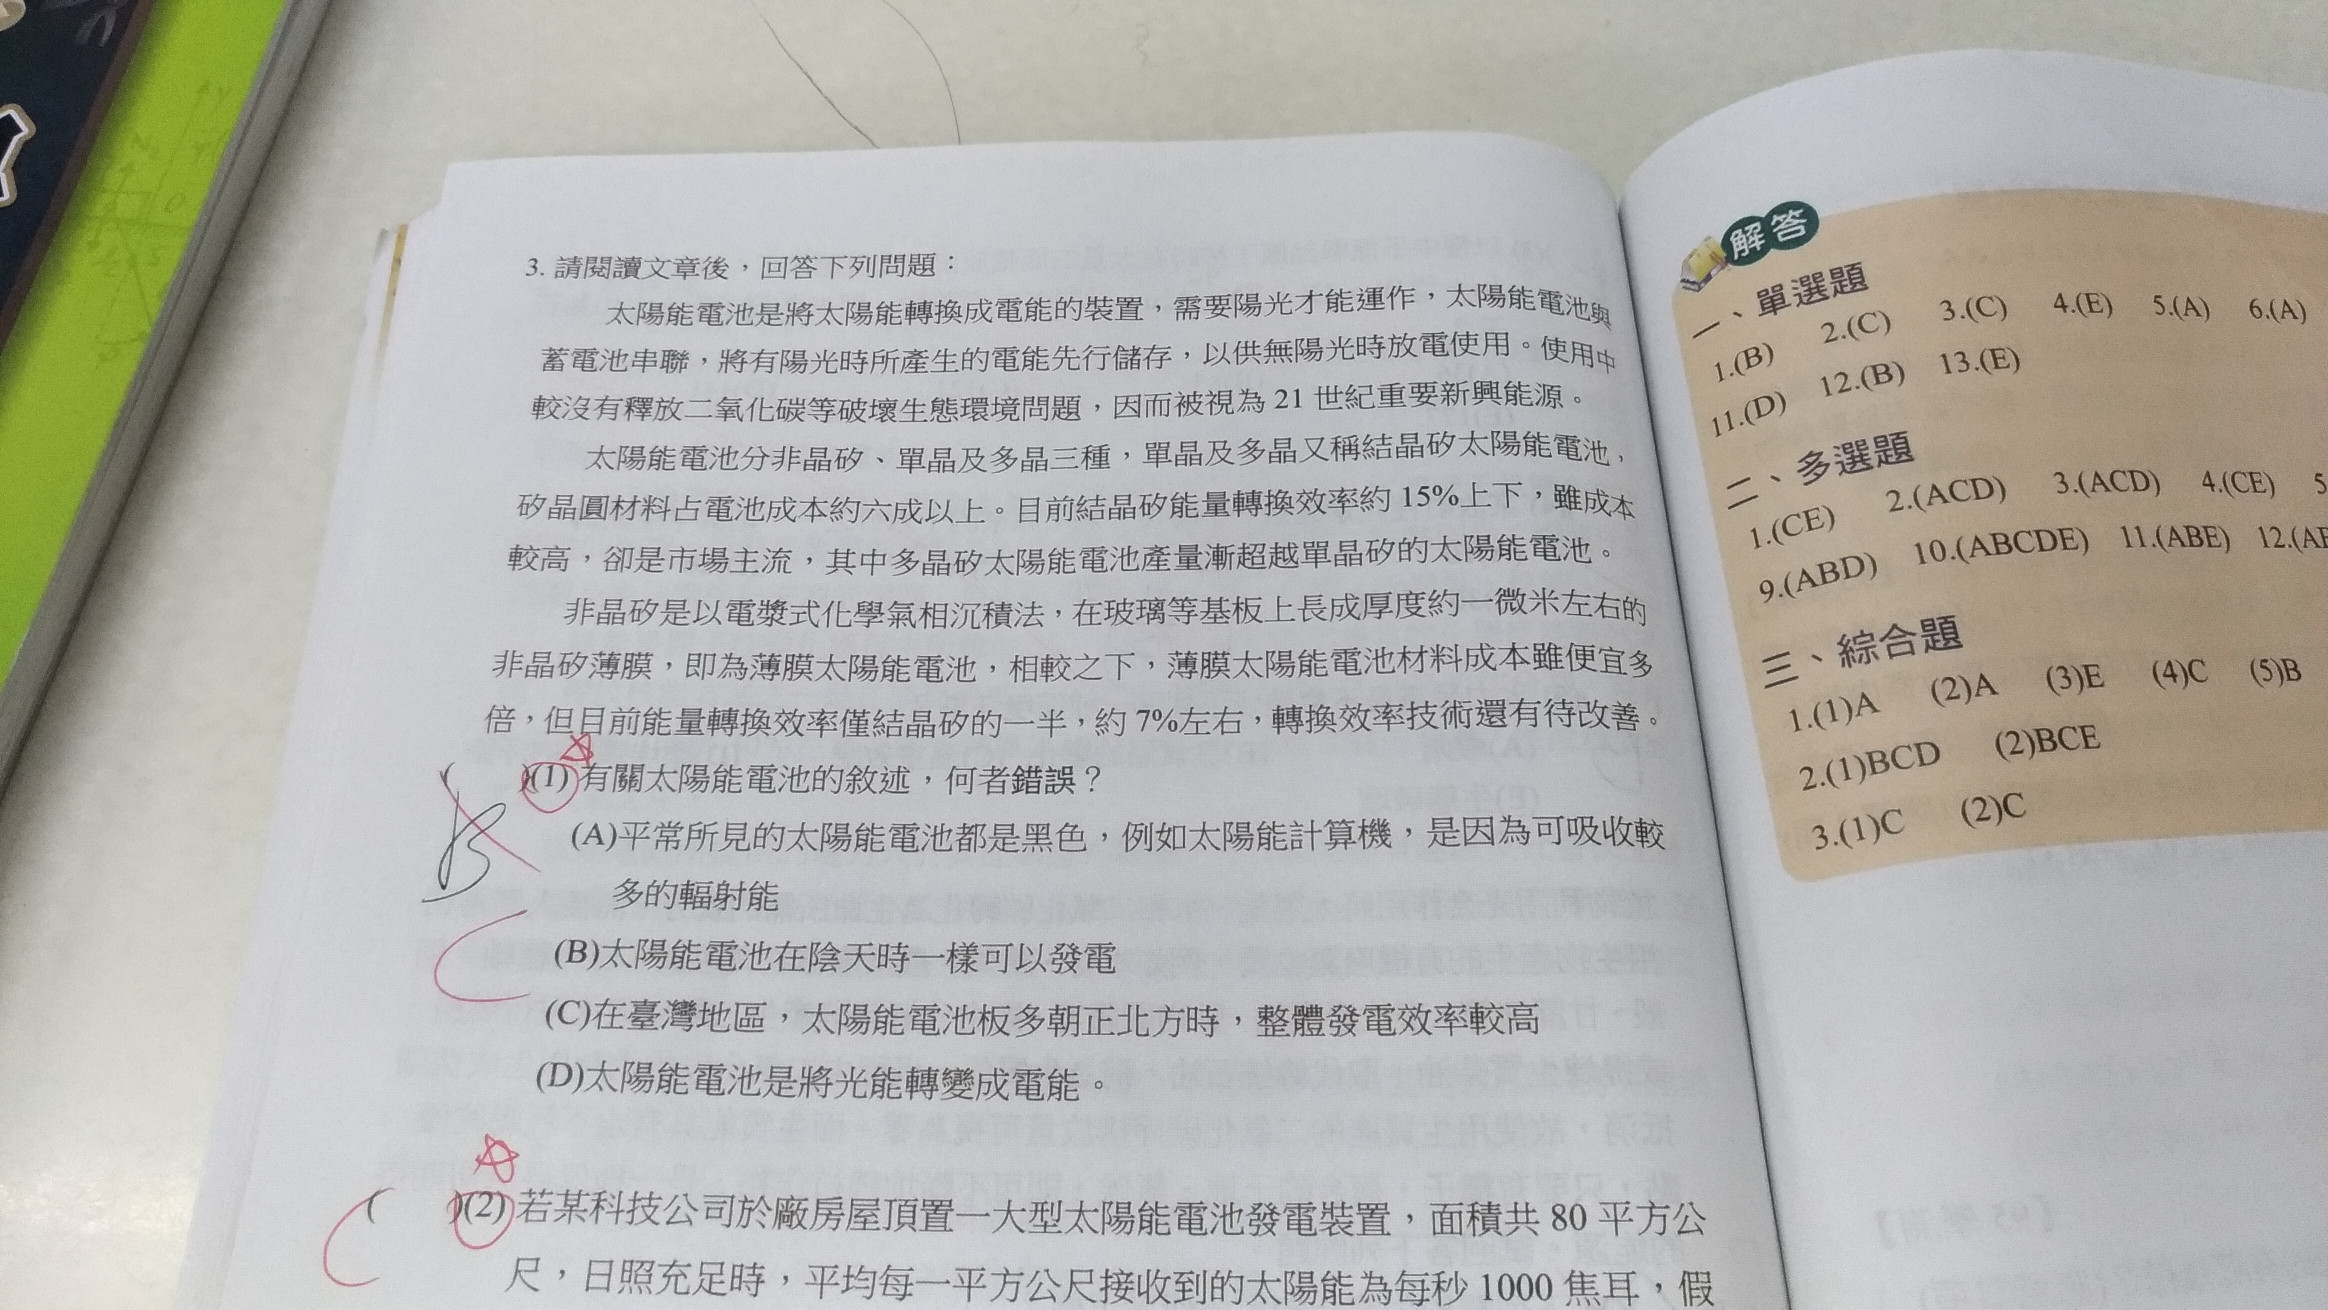 3. 請閱讀文章後，回答下列問題：
太陽能電池是將太陽能轉換成電能的裝置，需要陽光才能運作，太陽能電池與
蓄電池串聯，將有陽光時所產生的電能先行儲存，以供無陽光時放電使用。使用中
較沒有釋放二氧化碳等破壞生態環境問題，因而被視為 21 世紀重要新興能源。
太陽能電池分非晶矽、單晶及多晶三種，單晶及多晶又稱結晶矽太陽能電池，
矽晶圓材料占電池成本約六成以上。目前結晶矽能量轉換效率約 15%上下，雖成本
較高，卻是市場主流，其中多晶矽太陽能電池產量漸超越單晶矽的太陽能電池。
非晶矽是以電漿式化學氣相沉積法，在玻璃等基板上長成厚度約一微米左右的
非晶矽薄膜，即為薄膜太陽能電池，相較之下，薄膜太陽能電池材料成本雖便宜多
倍，但目前能量轉換效率僅結晶矽的一半，約 7%左右，轉換效率技術還有待改善。
( B )(1) 有關太陽能電池的敘述，何者錯誤？
C
(A)平常所見的太陽能電池都是黑色，例如太陽能計算機，是因為可吸收較
多的輻射能
(B)太陽能電池在陰天時一樣可以發電
(C)在臺灣地區，太陽能電池板多朝正北方時，整體發電效率較高
(D)太陽能電池是將光能轉變成電能。
C
( )(2) 若某科技公司於廠房屋頂置一大型太陽能電池發電裝置，面積共 80 平方公
尺，日照充足時，平均每一平方公尺接收到的太陽能為每秒 1000 焦耳，假
解答
一、單選題
1.(B) 2.(C) 3.(C) 4.(E) 5.(A) 6.(A)
11.(D) 12.(B) 13.(E)
二、多選題
1.(CE) 2.(ACD) 3.(ACD) 4.(CE) 5
9.(ABD) 10.(ABCDE) 11.(ABE) 12.(AB
三、綜合題
1.(1)A (2)A (3)E (4)C (5)B
2.(1)BCD (2)BCE
3.(1)C (2)C